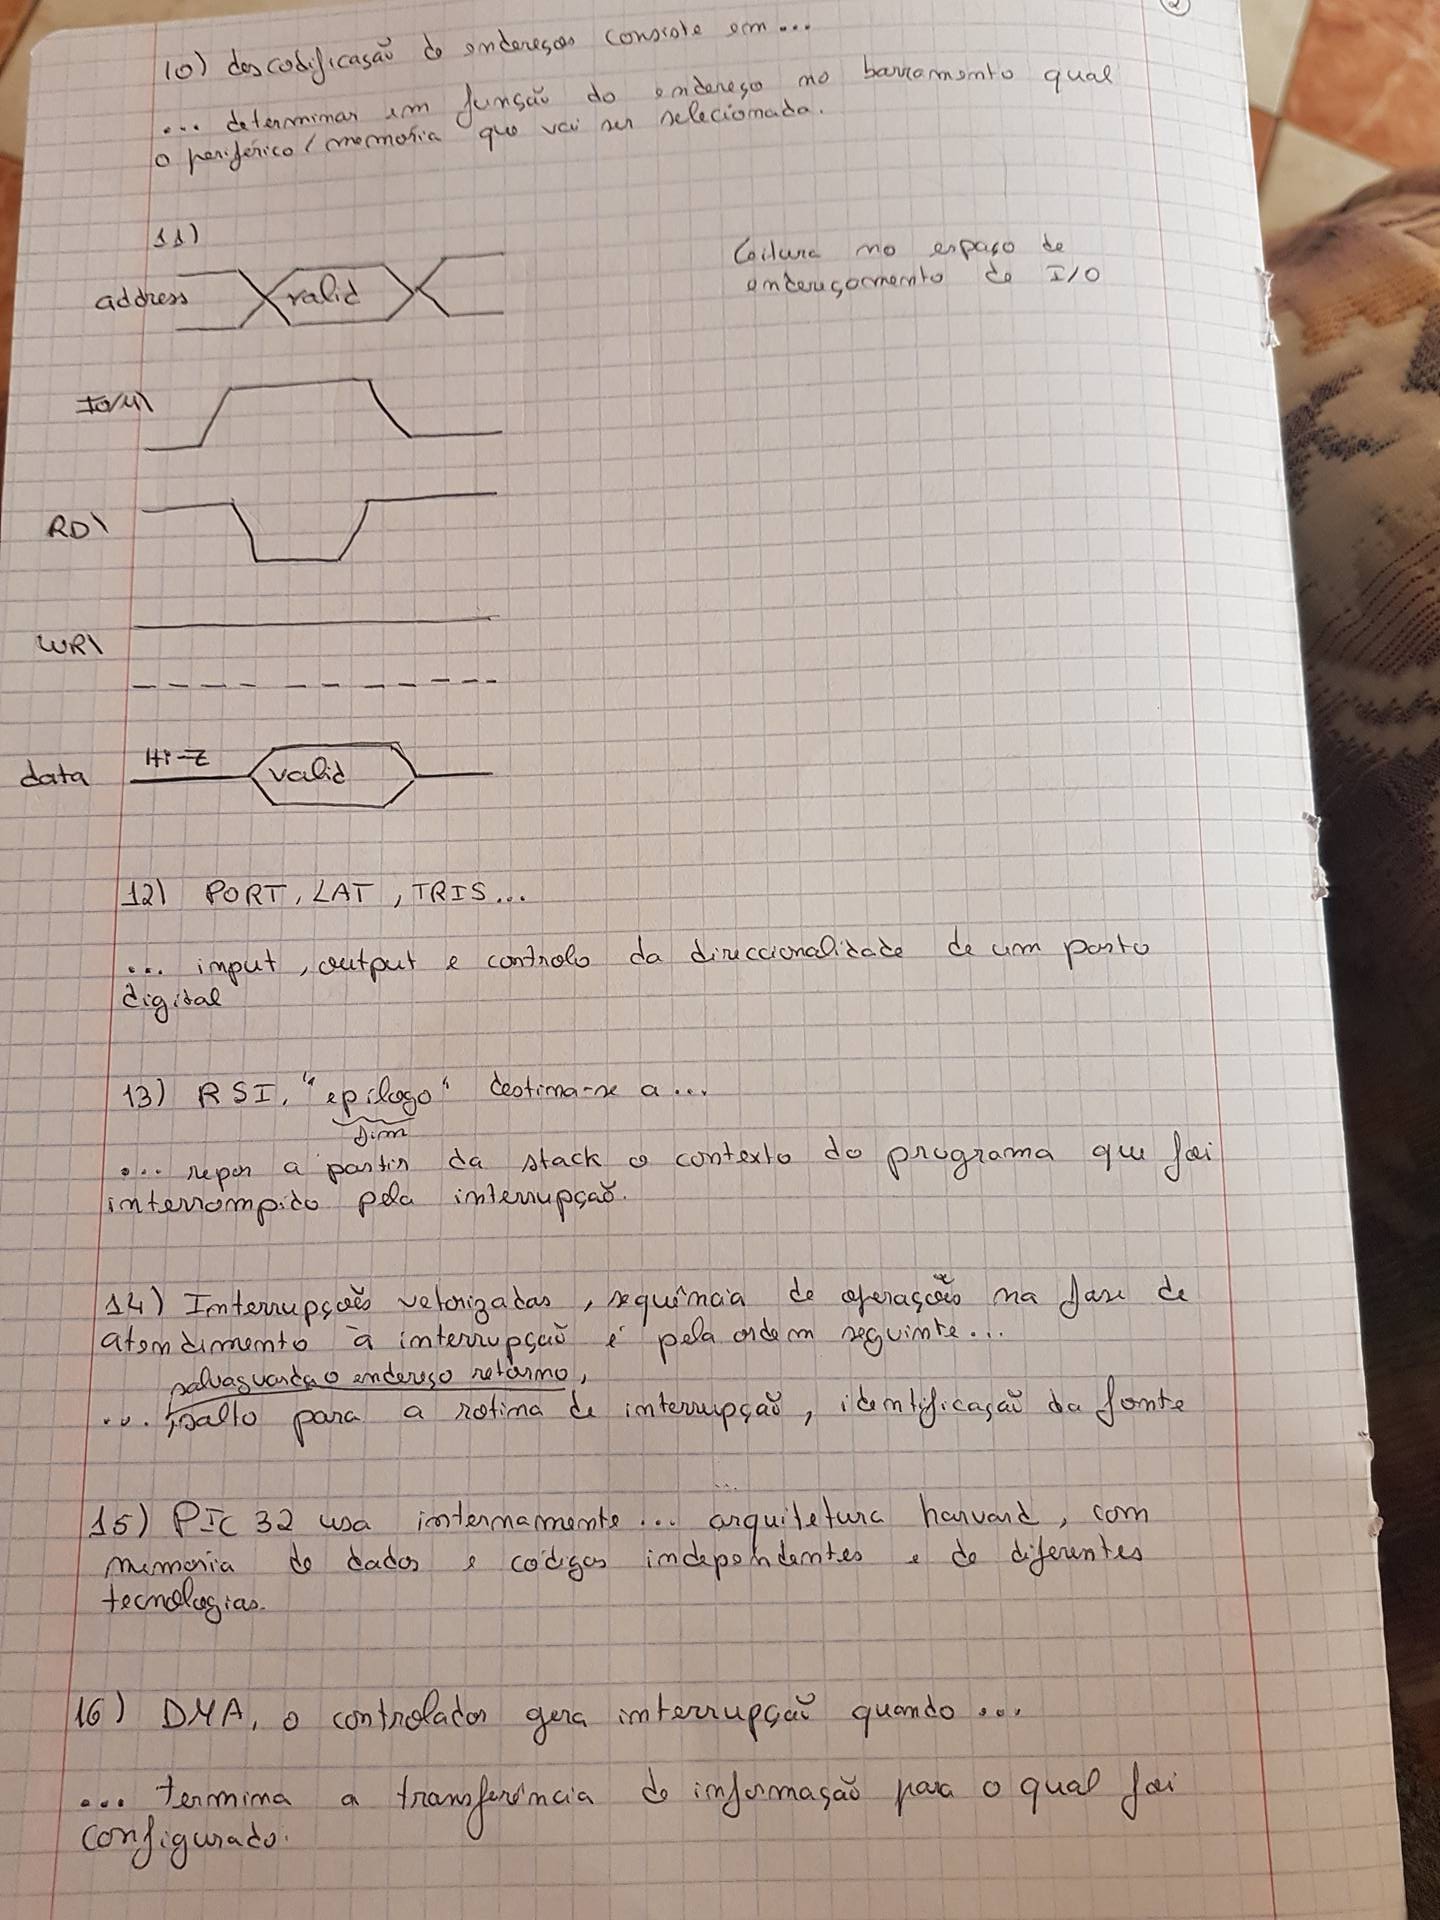 2
10) descodificação de endereços consiste em...
... determinar em função do endereço no barramento qual
o periférico/memória que vai ser selecionada.
11)
Leitura no espaço de
endereçamento de I/O
address valid
IO/M\
RD\
WR\
data Hi-Z valid
12) PORT, LAT, TRIS...
... input, output e controlo da direccionalidade de um porto
digital
13) RSI, "epílogo" destina-se a...
fim
... repor a partir da stack o contexto do programa que foi
interrompido pela interrupção.
14) Interrupções vetorizadas, sequência de operações na fase de
atendimento à interrupção é pela ordem seguinte...
salvaguarda o endereço retorno,
... salto para a rotina de interrupção, identificação da fonte
...
15) PIC 32 usa internamente... arquitetura harvard, com
memória de dados e códigos independentes e de diferentes
tecnologias.
16) DMA, o controlador gera interrupção quando...
... termina a transferência de informação para o qual foi
configurado.